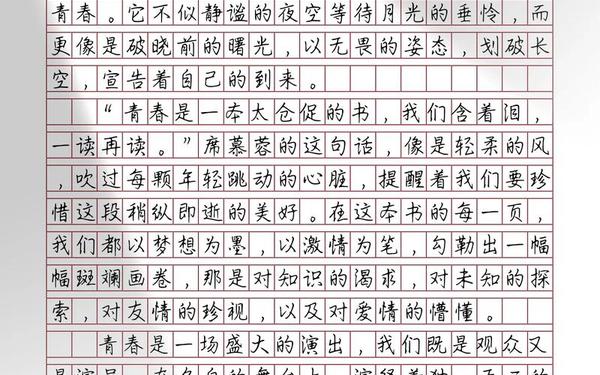 青春。它不似静谧的夜空等待月光的垂怜，而
更像是破晓前的曙光，以无畏的姿态，划破长
空，宣告着自己的到来。
“青春是一本太仓促的书，我们含着泪，
一读再读。”席慕蓉的这句话，像是轻柔的风
，吹过每颗年轻跳动的心脏，提醒着我们要珍
惜这段稍纵即逝的美好。在这本书的每一页，
我们都以梦想为墨，以激情为笔，勾勒出一幅
幅斑斓画卷，那是对知识的渴求，对未知的探
索，对友情的珍视，以及对爱情的懵懂。
青春是一场盛大的演出，我们既是观众又